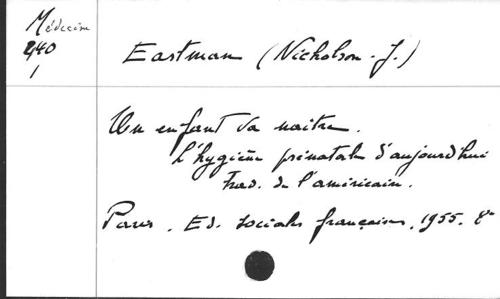 Médecine
240
1
Eastman (Nicholson. J.)
Un enfant va naitre.
l'hygiène prénatale d'aujourd'hui
Trad. de l'américain.
Paris. Ed. sociales françaises, 1955. 8°